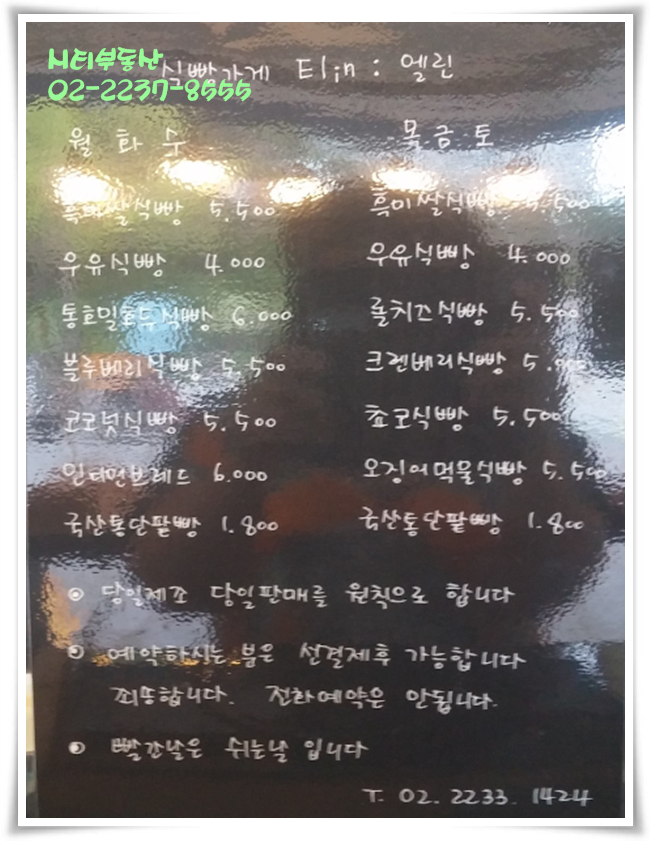 시티부동산
02-2237-8555
식빵가게 Elin : 엘린
월 화 수
목 금 토
흑미쌀식빵 5,500
흑미쌀식빵 5,500
우유식빵 4.000
우유식빵 4.000
통호밀호두식빵 6.000
롤치즈식빵 5.500
블루베리식빵 5,500
크렌베리식빵
코코넛식빵 5.500
쵸코식빵 5.500
6.000
오징어먹물식빵 5.500
국산통단팥빵 1.800
국산통단팥빵 1.800
⊙ 당일제조 당일판매를 원칙으로 합니다
⊙ 예약하시는 분은 선결제후 가능합니다
죄송합니다. 전화예약은 안됩니다.
⊙ 빨간날은 쉬는날 입니다
T. 02. 2233. 1424